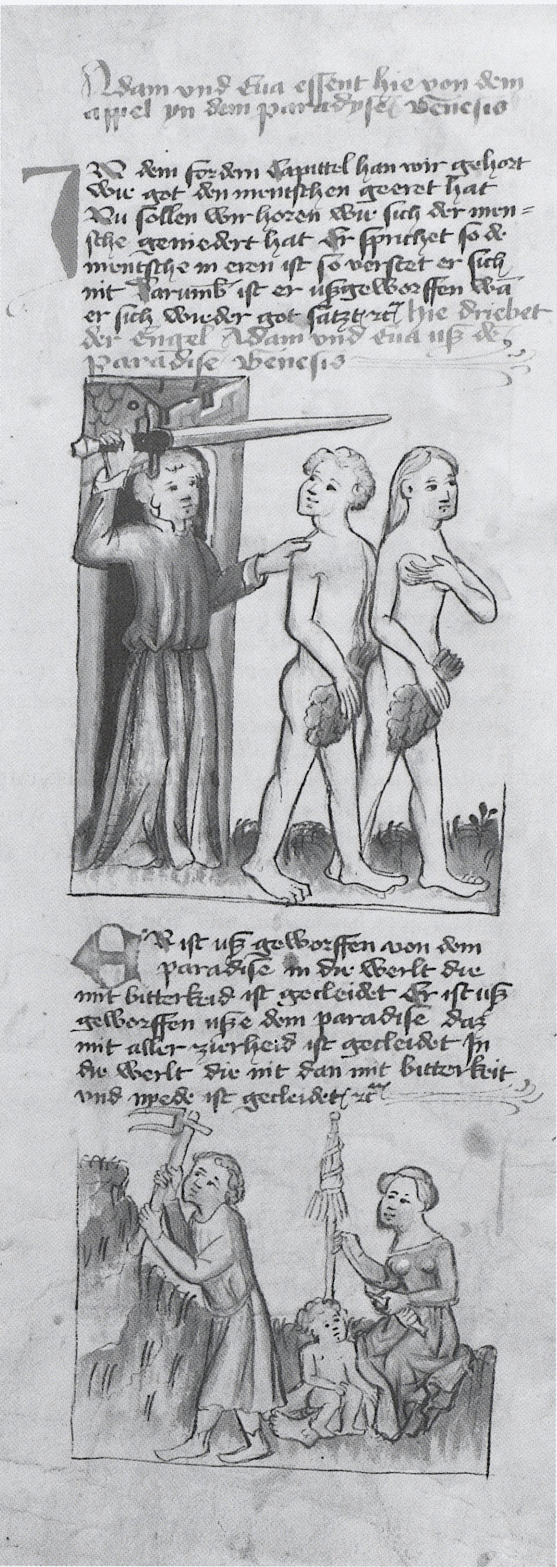 Adam vnd Eua essent hie von dem
appel yn dem paradyse Genesis
IN dem fordern Capittel han wir gehort
wie got den mentschen geeret hat
Nu sollen wir horen wie sich der men=
sche geniedert hat Er sprichet so de
mentsche in eren ist so verstet er sich
nit Darumb ist er ußgeworffen wā
er sich wieder got satzt ꝛc̄ hie driebet
der Engel Adam vnd Eua uß dē
paradise Genesis
ER ist uß geworffen von dem
paradise in die werlt die
mit bitterkeid ist gecleidet Er ist uß
geworffen usße dem paradise daz
mit aller zierheid ist gecleidet In
die werlt die nit dan mit bitterkeit
vnd ist gecleidet ꝛc̄